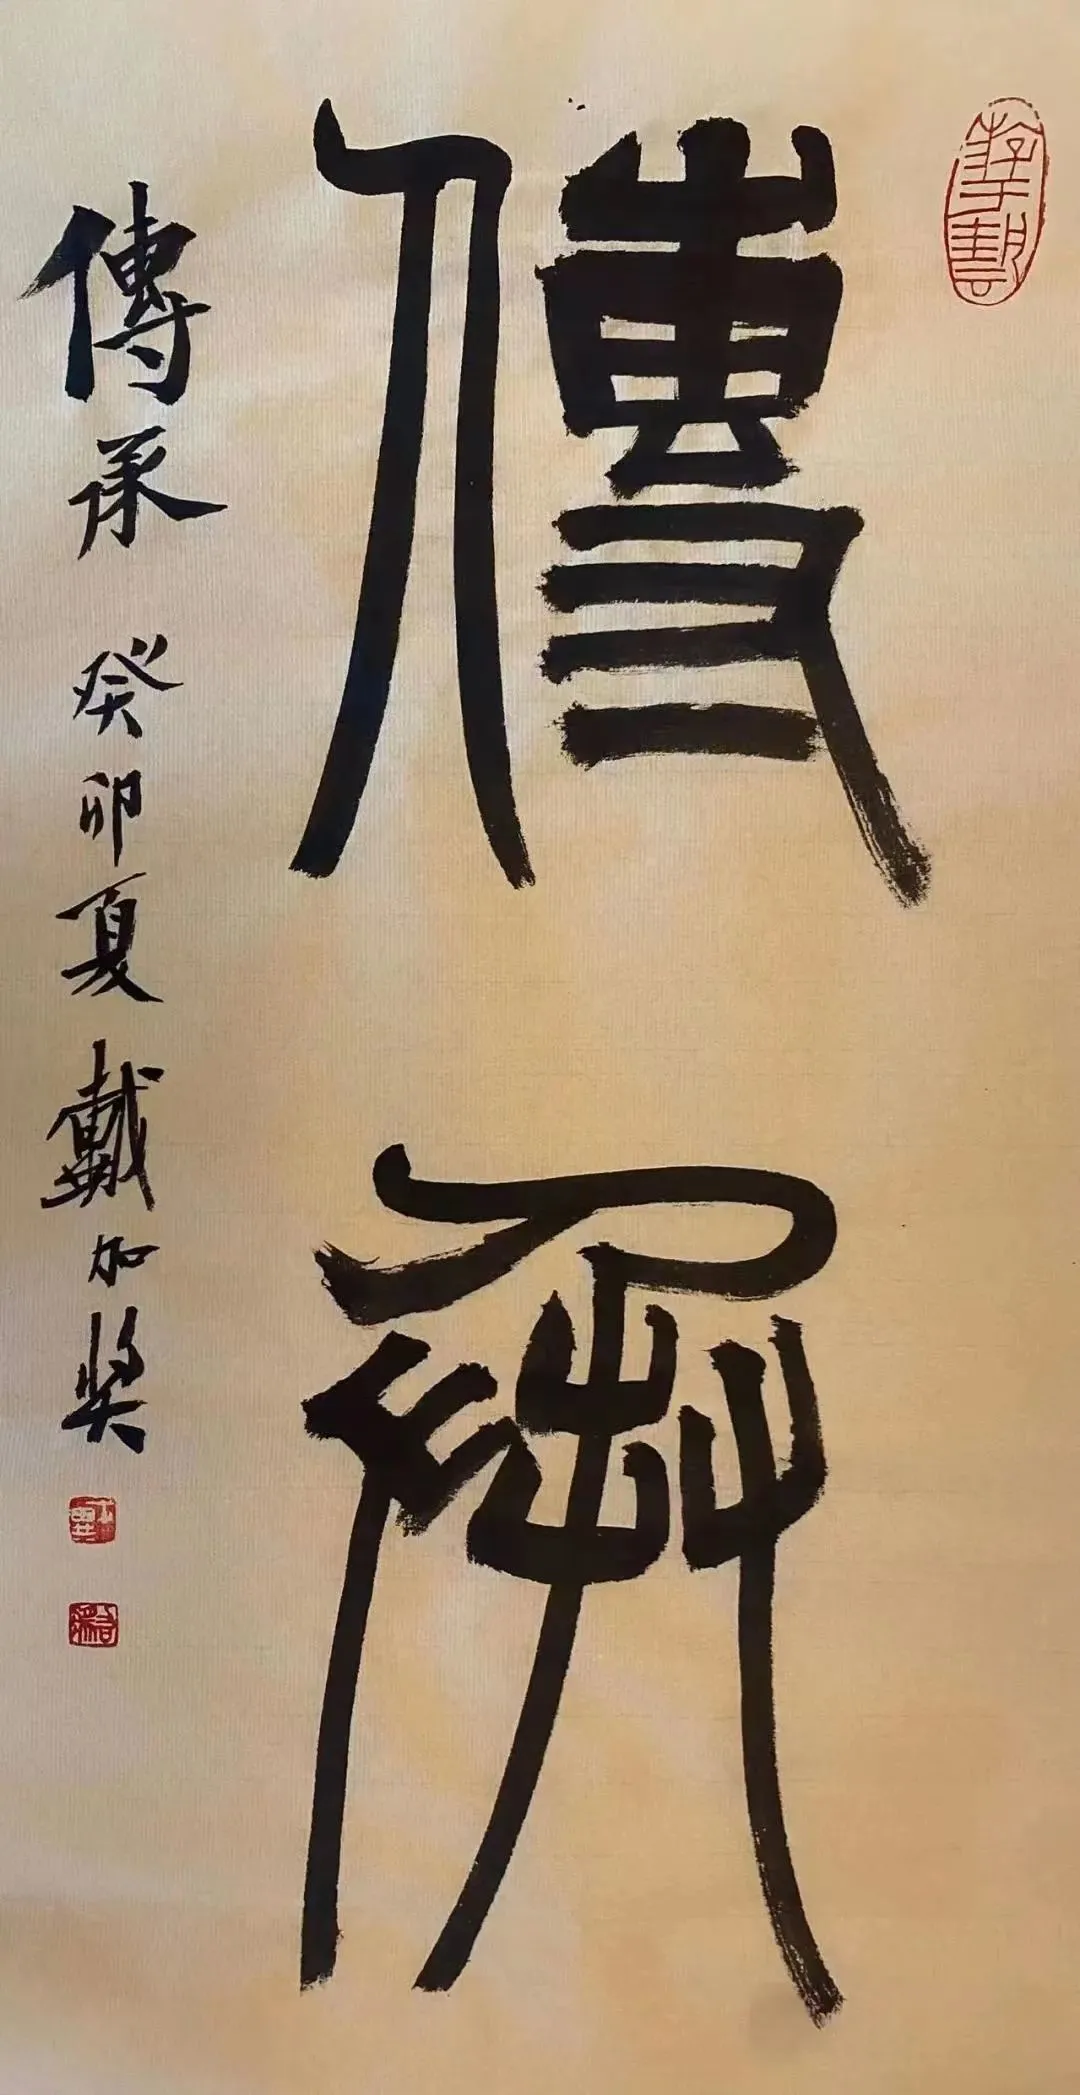 傳承
傳承 癸卯夏 戴加奖